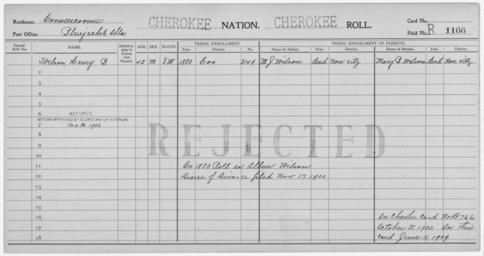 Residence: Cooweescoowee
Post Office:
CHEROKEE NATION. CHEROKEE ROLL.
Card No.
Field No. R 1166
Dawes' Roll No.
NAME.
Relationship to Person first Named.
AGE.
SEX.
BLOOD.
TRIBAL ENROLLMENT.
Year.
District.
No.
TRIBAL ENROLLMENT OF PARENTS.
Name of Father.
Year.
District.
Name of Mother.
Year.
District.
1 Wilson Henry B 42 M I.W. 1880 Coo 3149 M J Wilson dead non citz. Mary B Wilson dead non citz.
2
3
4
5
6 REFUSED
7 DECISION APPROVED BY SECRETARY OF INTERIOR
8
REJECTED
9
10
11 On 1880 Roll as Wilson
12 Decree of Divorce filed Nov 17, 1900
13
14
15
16 On Cherokee Card No D 766
17 October 31, 1902 On this
18 card June 11, 1904